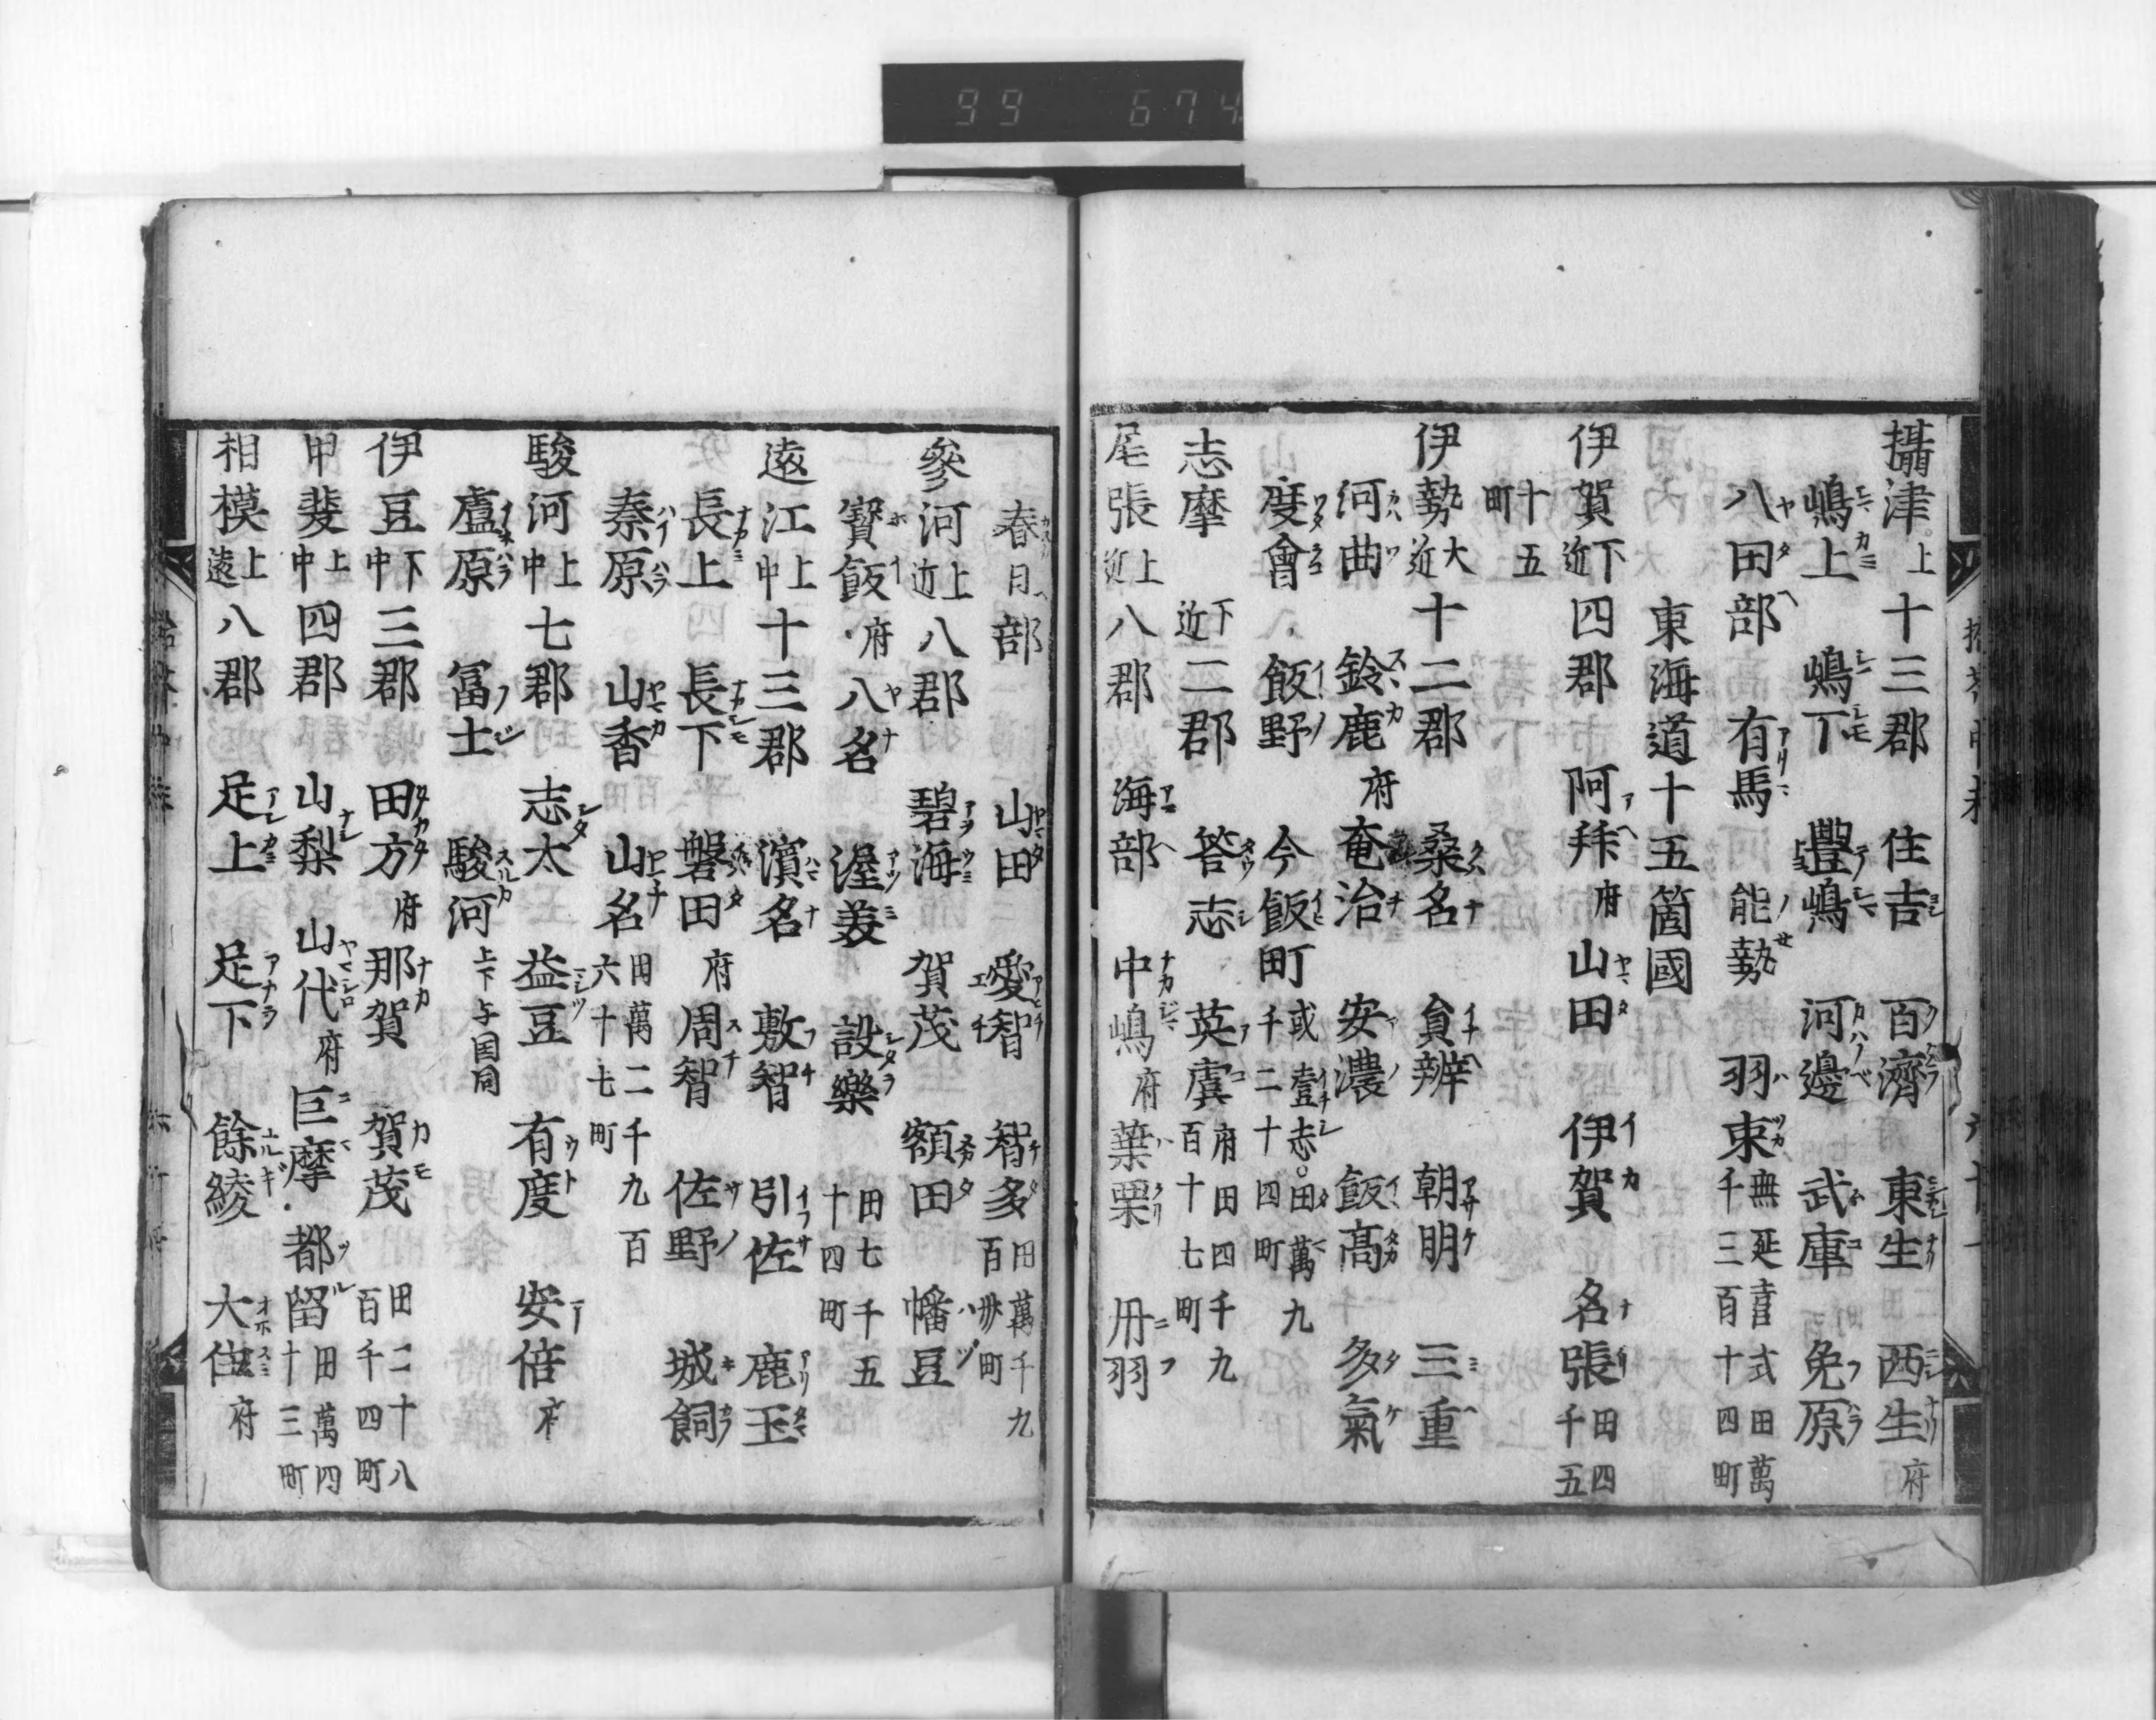 99 674
攝津上十三郡 住吉 百濟 東生 西生府
嶋上 嶋下 豐嶋 河邊 武庫 免原
八田部 有馬 能勢 羽束 無延喜式田萬千三百十四町
東海道十五箇國
伊賀下近四郡 阿拜府 山田 伊賀 名張 田四千五
十五町
伊勢大近十二郡 桑名 員辨 朝明 三重
河曲 鈴鹿府 奄治 安濃 飯高 多氣
度會 飯野 今飯町 或壹志。田萬九千二十四町
志摩下近二郡 答志 英虞 府田四千九百十七町
尾張上近八郡 海部 中嶋府 葉栗 丹羽
春日部 山田 愛智 智多 田萬千九百卅町
參河上近八郡 碧海 賀茂 額田 幡豆
寳飯府 八名 渥美 設樂 田七千五十四町
遠江上中十三郡 濱名 敷智 引佐 鹿玉
長上 長下 磐田府 周智 佐野 城飼
秦原 山香 山名 田萬二千九百六十七町
駿河上中七郡 志太 益豆 有度 安倍府
廬原 冨士 駿河 上下与国同
伊豆下中三郡 田方府 那賀 賀茂 田二十八百千四町
甲斐上中四郡 山梨 山代府 巨摩 都留 田萬四十三町
相模上遠八郡 足上 足下 餘綾 大住府